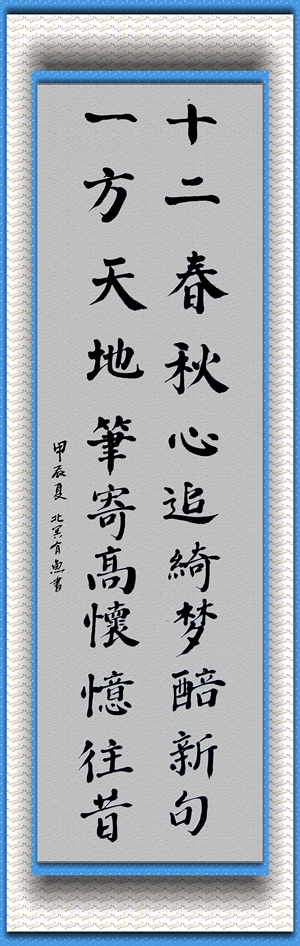 十二春秋心追綺梦酷新句
一方天地筆寄高懷憶往昔
甲辰夏 北冥有魚書